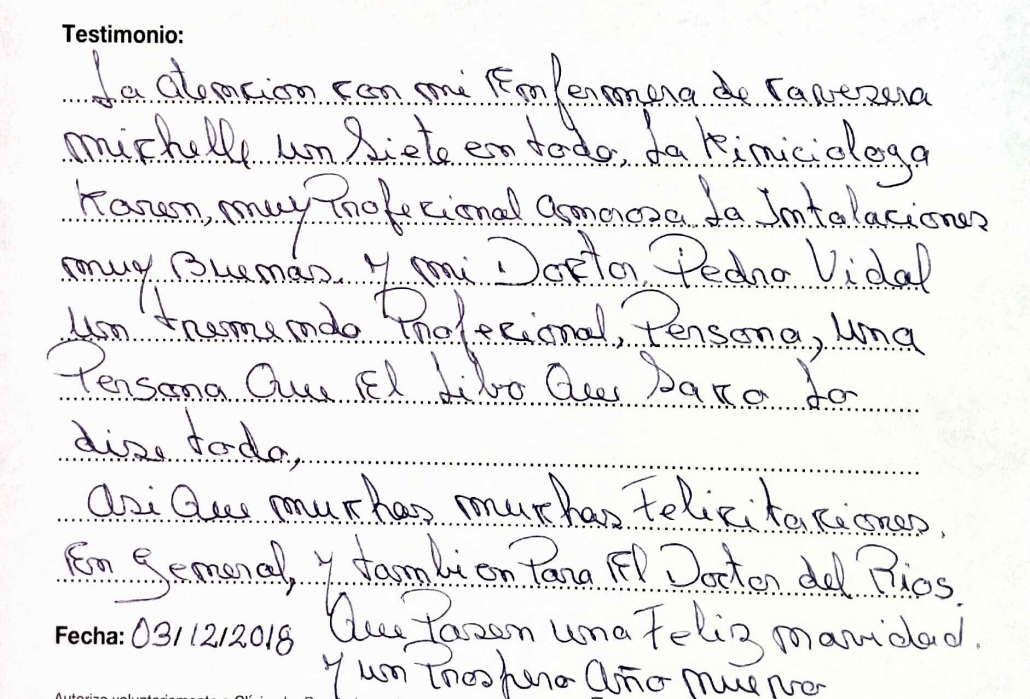 Testimonio:
La atencion con mi Enfermera de cavezera
michelle un Siete en todo, La Kiniciologa
Karen, muy Profecional amorosa La Intalaciones
muy Buenas. y mi Doctor, Pedro Vidal
un tremendo Profecional, Persona, una
Persona Que El Libro Que Saco Lo
dise todo,
asi Que muchas muchas Felicitaciones.
En general, y tambien Para El Doctor del Rios.
Fecha: 03/12/2018 Que Pasen una Feliz navidad.
y un Prospero Año nuevo